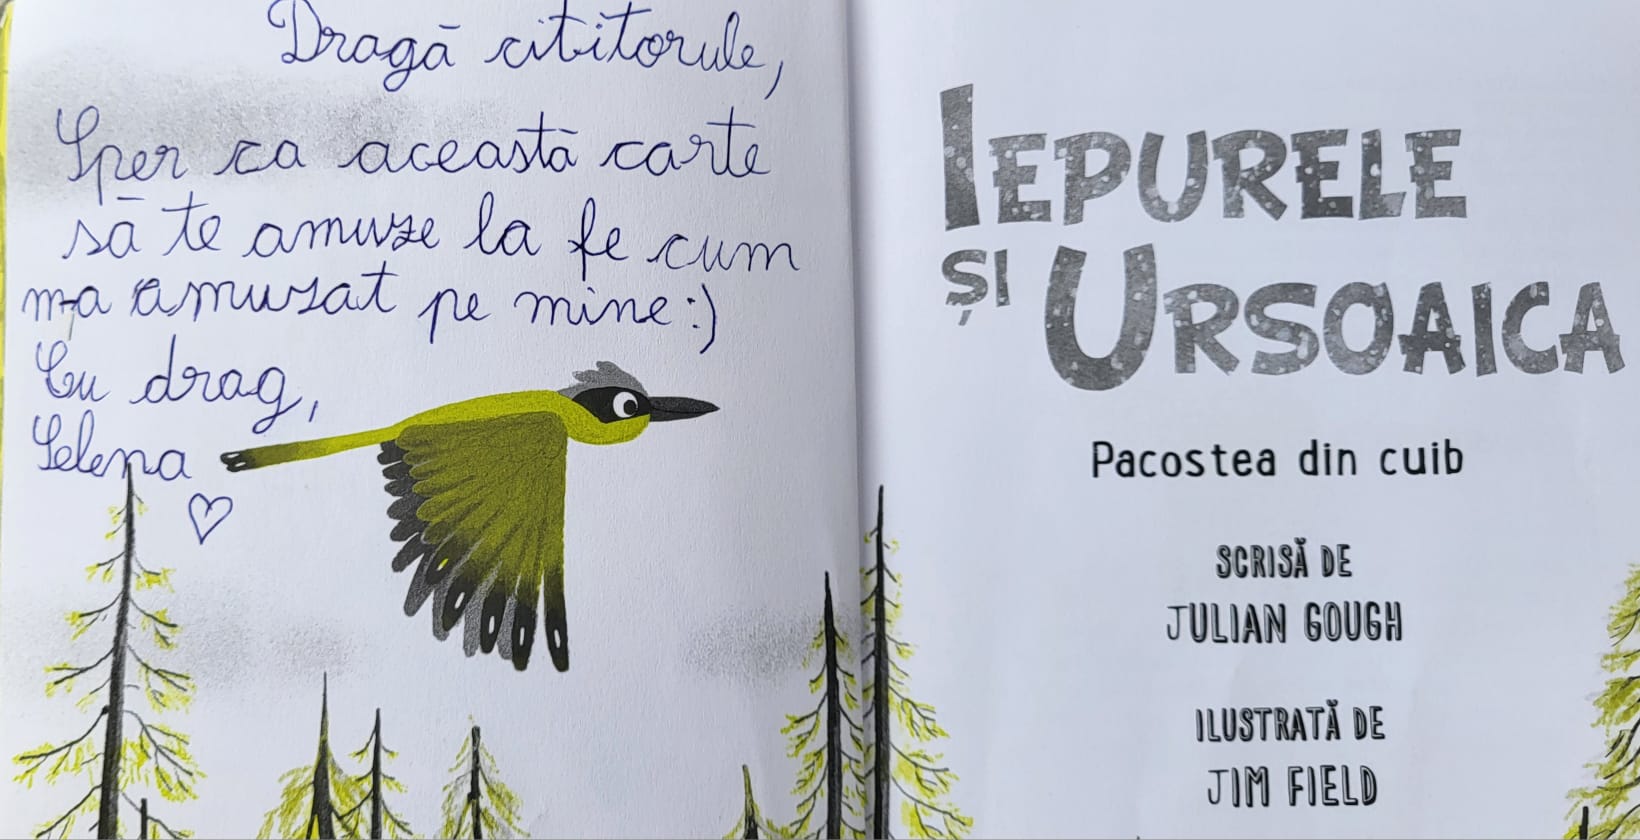 Dragă cititorule,
Sper ca această carte
să te amuze la fe cum
m-a amuzat pe mine :)
Cu drag,
Selena
IEPURELE
ȘI URSOAICA
Pacostea din cuib
SCRISĂ DE
JULIAN GOUGH
ILUSTRATĂ DE
JIM FIELD